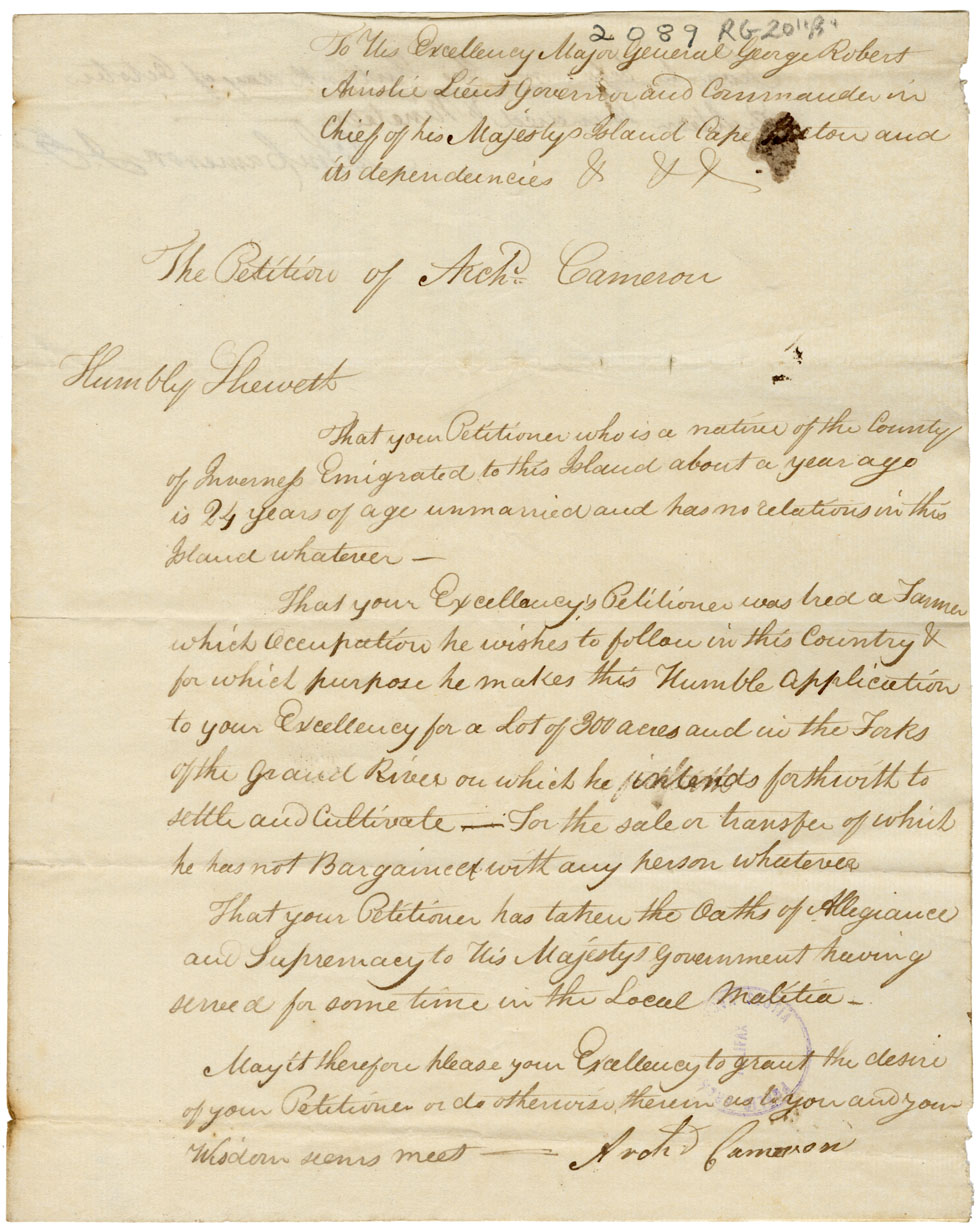 2089 RG20"B"
To His Excellency Major General George Robert
Ainslie Lieut Governor and Commander in
Chief of his Majestys Island Cape eton and
its dependencies & & &
The Petition of Archd Cameron
Humbly Sheweth
That your Petitioner who is a native of the County
of Inverness Emigrated to this Island about a year ago
is 24 years of age unmarried and has no relations in this
Island whatever —
That your Excellency's Petitioner was bred a Farmer
which occupation he wishes to follow in this Country &
for which purpose he makes this Humble application
to your Excellency for a Lot of 300 acres and in the Forks
of the Grand River on which he intends forthwith to
settle and Cultivate — For the sale or transfer of which
he has not Bargained with any person whatever
That your Petitioner has taken the Oaths of Allegiance
and Supremacy to His Majestys Government having
served for some time in the Local Malitia —
May it therefore please your Excellency to grant the desire
of your Petitioner or do otherwise therein as to you and your
Wisdom seems meet — Archd Cameron